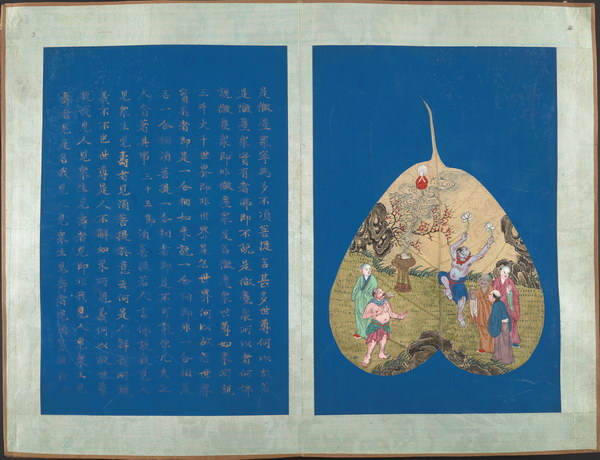 是微塵眾寧為多不須菩提言甚多世尊何以故若
是微塵眾實有者佛即不說是微塵眾所以者何佛
說微塵眾即非微塵眾是名微塵眾世尊如來所說
三千大千世界即非世界是名世界何以故若世界
實有者即是一合相如來說一合相即非一合相是
名一合相須菩提一合相者即是不可說但凡夫之
人貪著其事三十五須菩提若人言佛說我見人
見眾生見壽者見須菩提於意云何是人解我所說
義不不也世尊是人不解如來所說義何以故世尊
說我見人見眾生見壽者見即非我見人見眾生見
壽者見是名我見人見眾生見壽者見須菩提